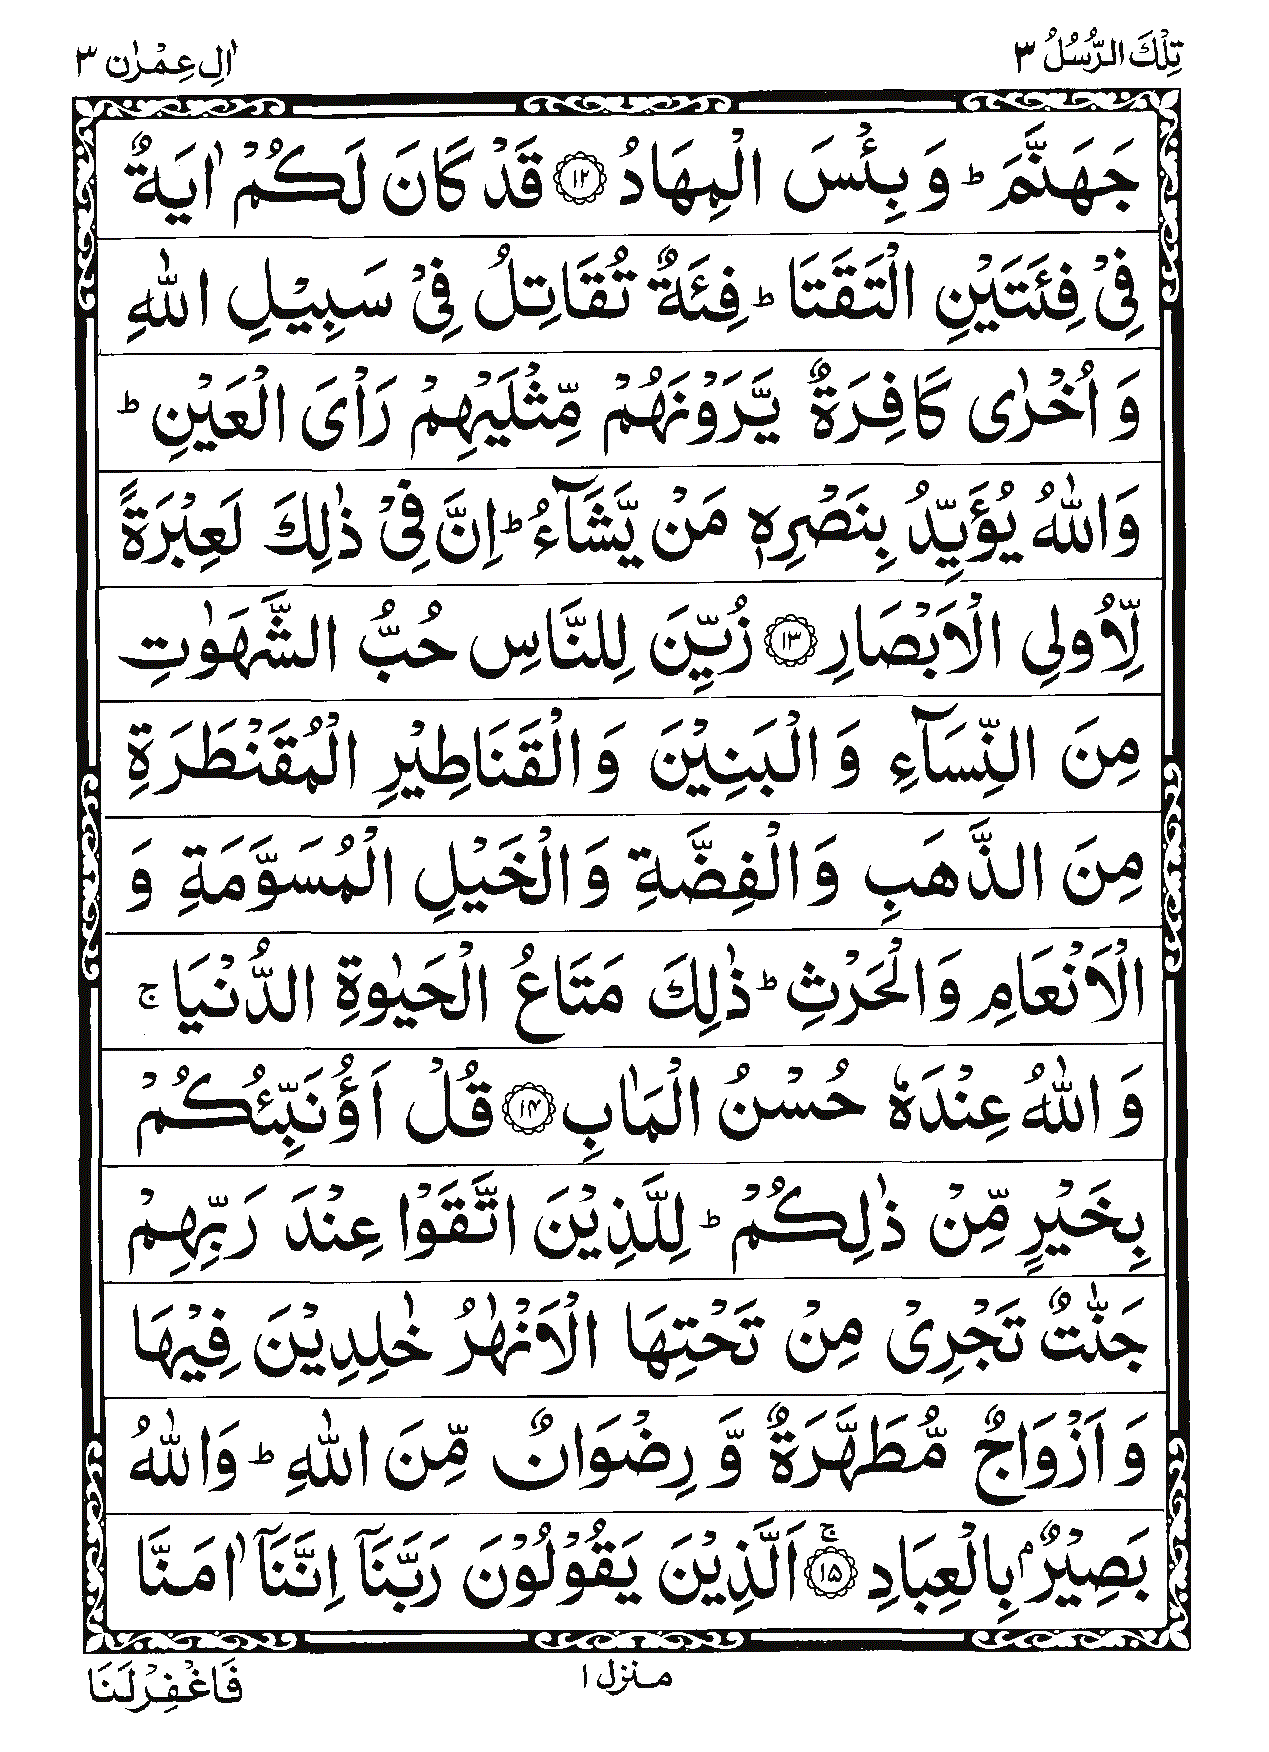 تِلْكَ الرُّسُلُ ٣
اٰلِ عِمْرٰن ٣
جَهَنَّمَ ؕ وَ بِئْسَ الْمِهَادُ ۝۱۲ قَدْ كَانَ لَكُمْ اٰيَةٌ
فِیْ فِئَتَيْنِ الْتَقَتَا ؕ فِئَةٌ تُقَاتِلُ فِیْ سَبِيْلِ اللّٰهِ
وَ اُخْرٰى كَافِرَةٌ يَّرَوْنَهُمْ مِّثْلَيْهِمْ رَاْیَ الْعَيْنِ ؕ
وَاللّٰهُ يُؤَيِّدُ بِنَصْرِهٖ مَنْ يَّشَآءُ ؕ اِنَّ فِیْ ذٰلِكَ لَعِبْرَةً
لِّاُولِی الْاَبْصَارِ ۝۱۳ زُيِّنَ لِلنَّاسِ حُبُّ الشَّهَوٰتِ
مِنَ النِّسَآءِ وَ الْبَنِيْنَ وَ الْقَنَاطِيْرِ الْمُقَنْطَرَةِ
مِنَ الذَّهَبِ وَ الْفِضَّةِ وَ الْخَيْلِ الْمُسَوَّمَةِ وَ
الْاَنْعَامِ وَ الْحَرْثِ ؕ ذٰلِكَ مَتَاعُ الْحَيٰوةِ الدُّنْيَا ۚ
وَ اللّٰهُ عِنْدَهٗ حُسْنُ الْمَاٰبِ ۝۱۴ قُلْ اَؤُنَبِّئُكُمْ
بِخَيْرٍ مِّنْ ذٰلِكُمْ ؕ لِلَّذِيْنَ اتَّقَوْا عِنْدَ رَبِّهِمْ
جَنّٰتٌ تَجْرِیْ مِنْ تَحْتِهَا الْاَنْهٰرُ خٰلِدِيْنَ فِيْهَا
وَ اَزْوَاجٌ مُّطَهَّرَةٌ وَّ رِضْوَانٌ مِّنَ اللّٰهِ ؕ وَاللّٰهُ
بَصِيْرٌۢ بِالْعِبَادِ ۝۱۵ۚ اَلَّذِيْنَ يَقُوْلُوْنَ رَبَّنَاۤ اِنَّنَاۤ اٰمَنَّا
منزل ۱
فَاغْفِرْ لَنَا